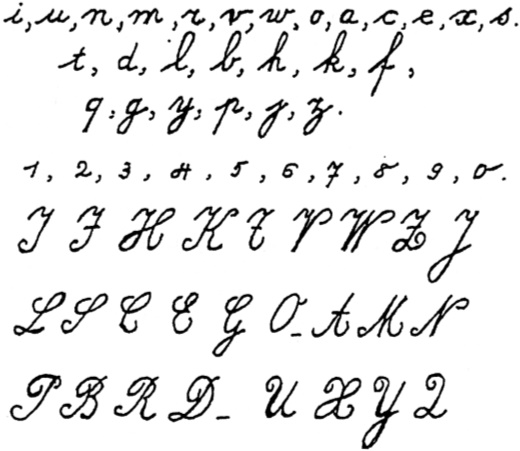 i, u, n, m, r, v, w, o, a, c, e, x, s.
t, d, l, b, h, k, f,
q, g, y, p, j, z.
1, 2, 3, 4, 5, 6, 7, 8, 9, 0.
I F H K T V W Z J
L S C E G O_ A M N
P B R D_ U X Y Q